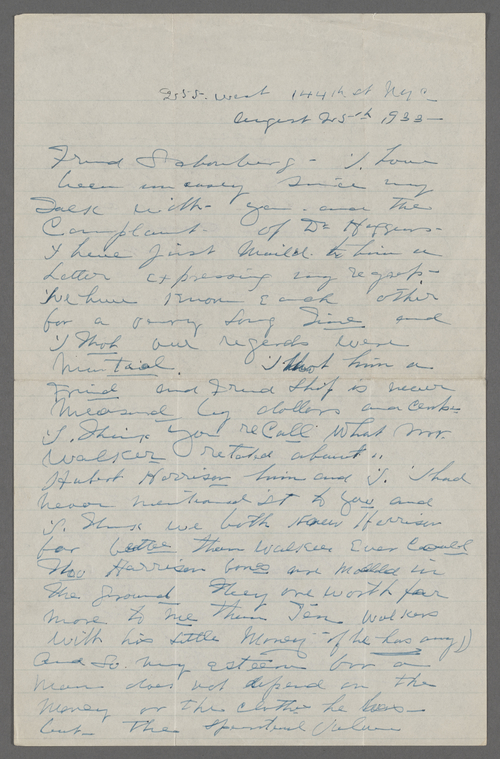 255. West 144th st Nyc
August 25th 1933-
Frend Schomberg - I. have
been uneasy since my
Talk with- you and the
Complaint- of Dr Huggins-
I have just Maild. to him a
Letter expressing my regrets-
We have known Each other
for a very Long Time and
I Thot our regards were
Mental. I thot him a
Frind and Frind Ship is never
Measurd by dollars and Cents
I. Think You reCall What Mr.
Walker retated about
Hubert Harrison him and I. I had
never mentioned it to you and
I. Think we both Knew Harrison
far bette than Walker Ever Could
Tho Harrison bones are molded in
The ground They are worth far
more to me than Ten Walkers
With his Little Money - if he has any))
And So. my esteem for a
Man does not depend on the
Money or the clothe he has-
but The Spiritual Values